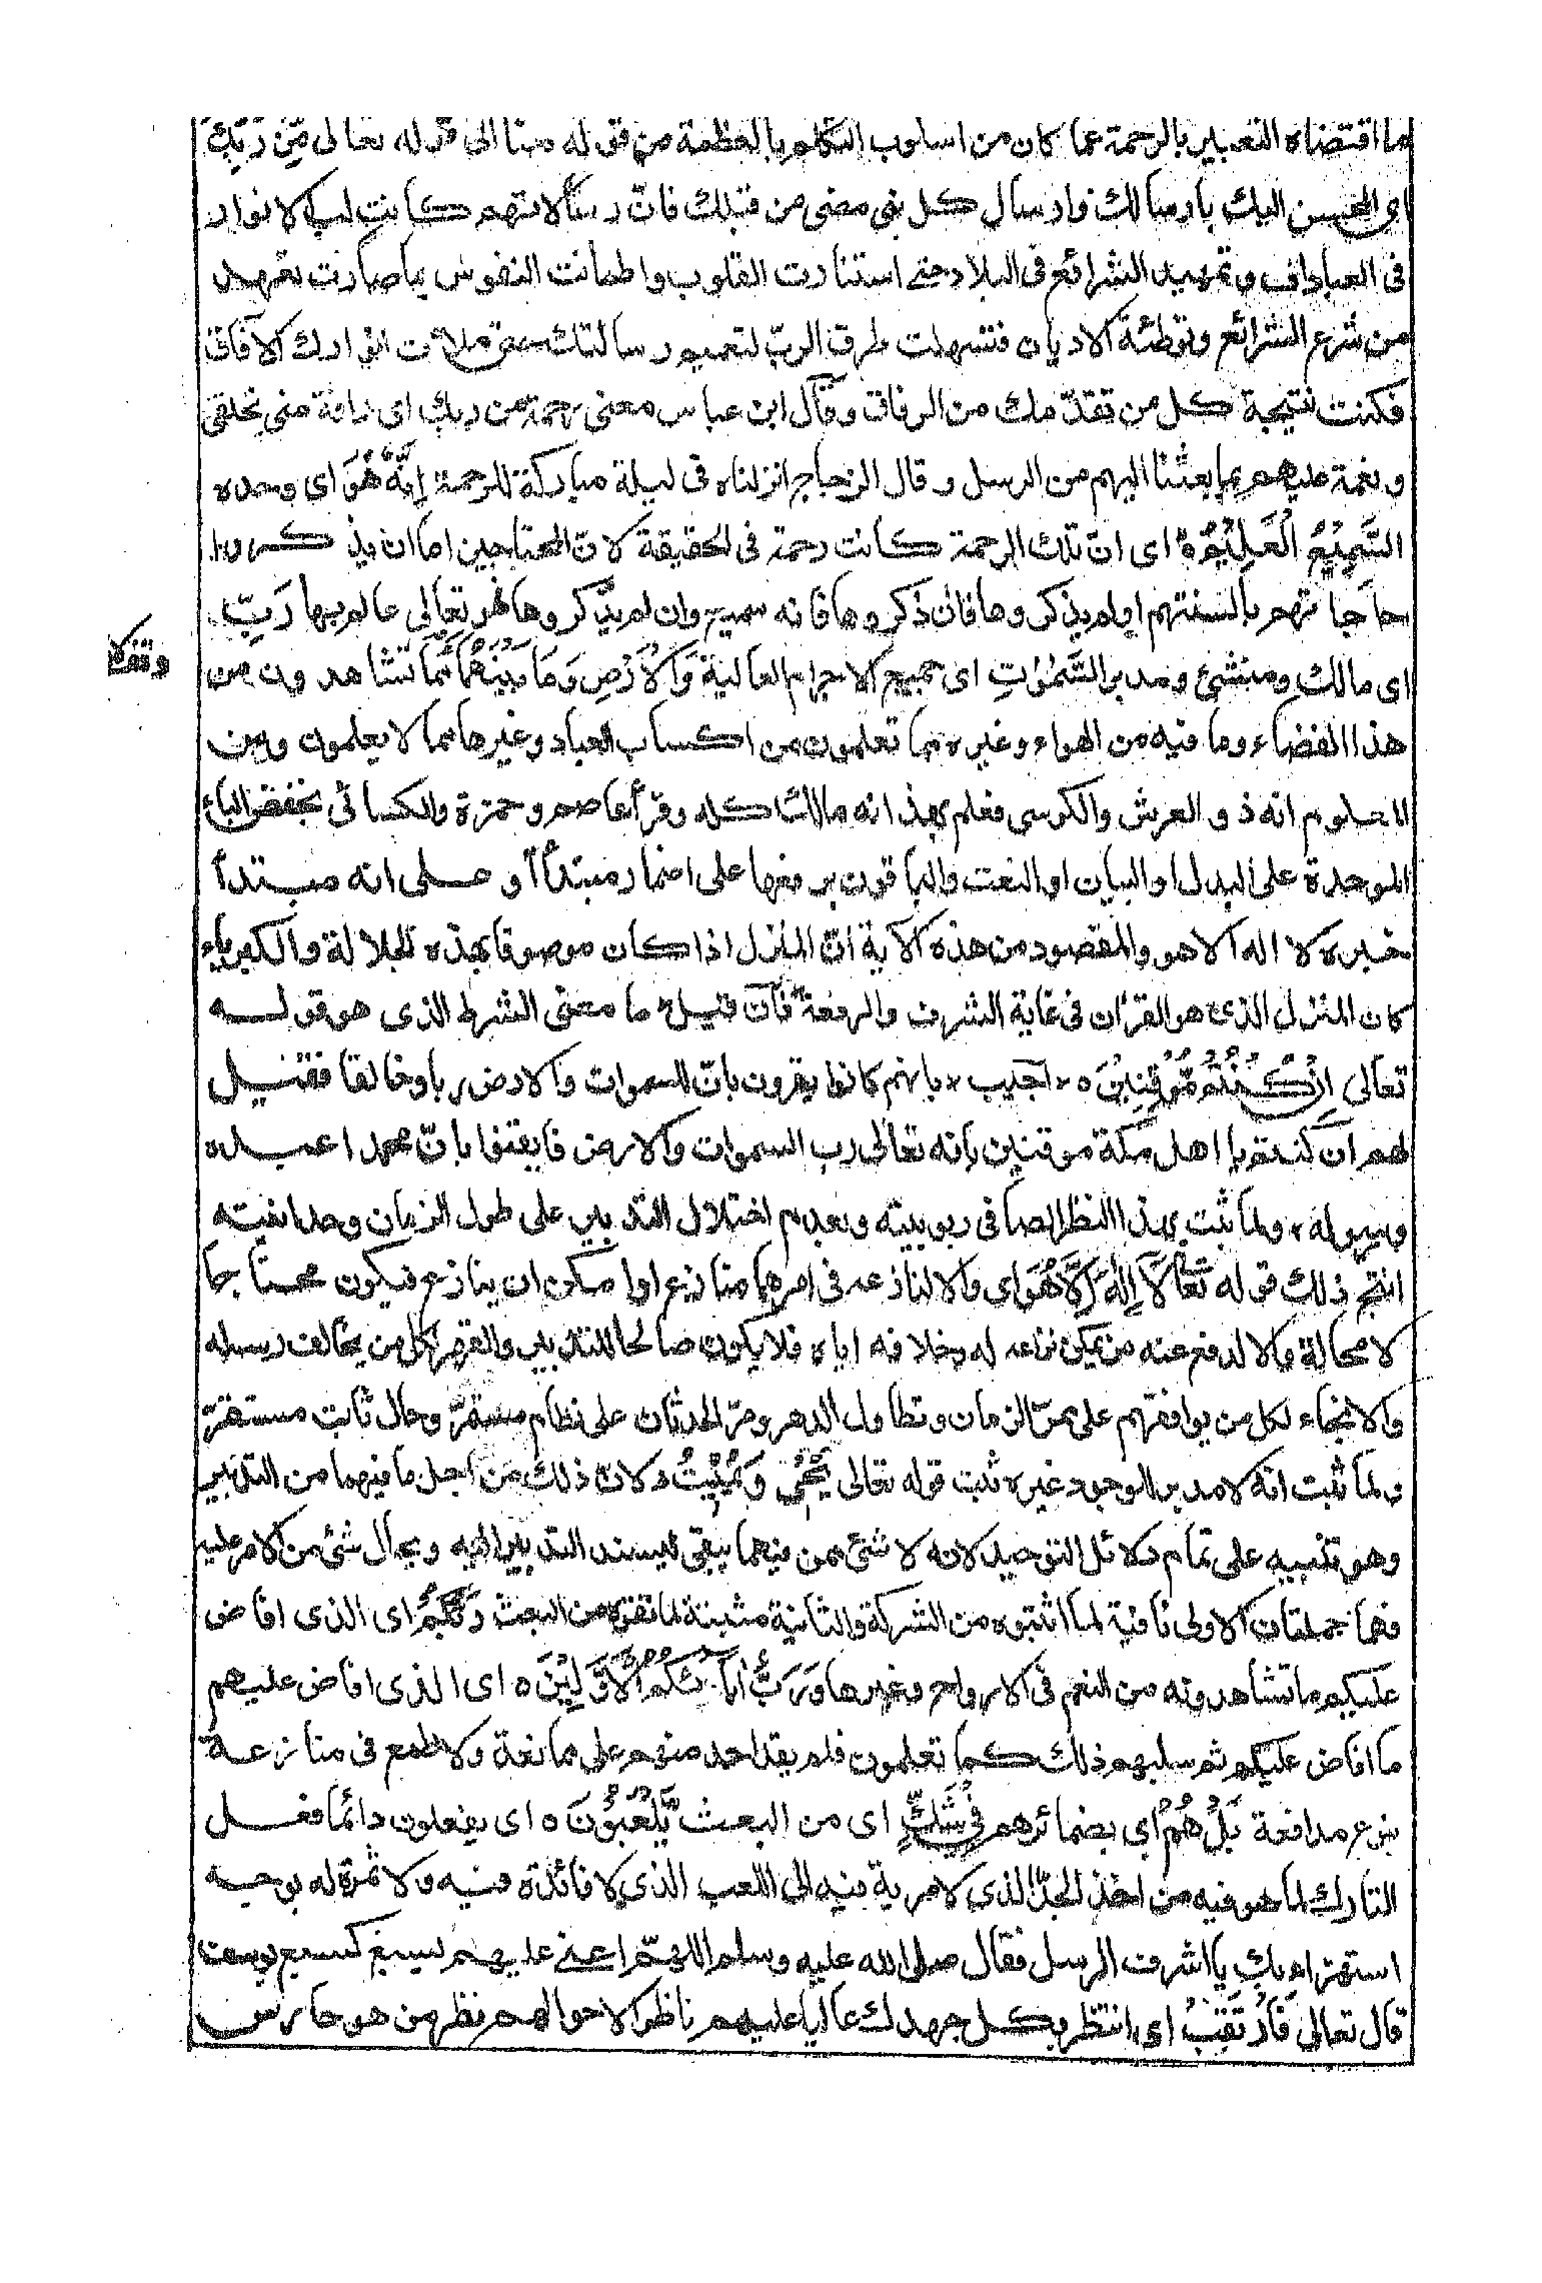 ما اقتضاه التعبير بالرحمة عما كان من اسلوب التكلم بالعظمة من قوله منا الى قوله تعالى مِّن رَّبِّكَ
اى المحسن اليك بارسالك وارسال كل نبى مضى من قبلك فانّ رسالاتهم كانت لبث الانوار
فى العباد وتمهيد الشرائع فى البلاد حتى استنارت القلوب واطمانت النفوس بما صارت تعهد
من شرع الشرائع وتوطئة الاديان فتسهلت طرق الربّ لتعميم رسالتك حتى ملأت انوارك الآفاق
فكنت نتيجة كل من تقدّمك من الرفاق وقال ابن عباس معنى رحمة من ربك اى رافة منى بخلقى
ونعمة عليهم بما بعثنا اليهم من الرسل وقال الزجاج انزلناه فى ليلة مباركة للرحمة اِنَّهٗ هُوَ اى وحده
السَّمِيْعُ الْعَلِيْمُ ه اى انّ تلك الرحمة كانت رحمة فى الحقيقة لانّ المحتاجين اما ان يذكروا
حاجاتهم بالسنتهم اولم يذكروها فان ذكروها فانه سميع وان لم يذكروها فهو تعالى عالم بها رَبِّ
اى مالك ومنشئ ومدبر السَّمٰوٰتِ اى جميع الاجرام العالية وَالْاَرْضِ وَمَا بَيْنَهُمَا مما تشاهدون من
هذا الفضاء وما فيه من الهواء وغيره مما تعلمون من اكساب العباد وغيرها مما لا يعلمون ومن
المعلوم انه ذو العرش والكرسى فعلم بهذا انه مالك كله وقرأ عاصم وحمزة والكسائى بخفض الباء
الموحدة على البدل او البيان او النعت والباقون برفعها على اضمار مبتدأ او على انه مبتدأ
خبره لا اله الا هو والمقصود من هذه الآية انّ المنزل اذا كان موصوفا بهذه الجلالة والكبرياء
كان المنزل الذى هو القرآن فى غاية الشرف والرفعة فان قيل ما معنى الشرط الذى هو قوله
تعالى اِنْ كُنْتُمْ مُّوْقِنِيْنَ ه اجيب بانهم كانوا يقرون بانّ للسموات والارض ربا وخالقا فقيل
لهم ان كنتم يا اهل مكة موقنين بانه تعالى رب السموات والارض فايقنوا بانّ محمدا عبده
ورسوله ولما ثبت بهذا النظر الصافى ربوبيته وبعدم اختلال التدبير على طول الزمان وحدانيته
انتج ذلك قوله تعالى لَآ اِلٰهَ اِلَّا هُوَ اى والا لنازعه فى امرهما منازع او امكن ان ينازع فيكون محتاجا
لا محالة والا لدفع عنه من يمكن نزاعه له وخلافه اياه فلا يكون صالحا للتدبير والقهر لكل من يخالف رسله
والانجاء لكل من يوافقهم على مرّ الزمان وتطاول الدهر ومرّ الحدثان على نظام مستمرّ وحال ثابت مستقرّ
ولما ثبت انه لا مدبر للوجود غيره ثبت قوله تعالى يُحْيٖ وَيُمِيْتُ لانّ ذلك من اجل ما فيهما من التدبير
وهو تنبيه على تمام دلائل التوحيد لانه لا شئ ممن فيهما يبقى ليسند التدبير اليه ويحال شئ من الامر عليه
فهما جملتان الاولى نافية لما اثبتوه من الشركة والثانية مثبتة لما نفوه من البعث رَبُّكُمْ اى الذى افاض
عليكم ما تشاهدونه من النعم فى الارواح وغيرها وَرَبُّ اٰبَآئِكُمُ الْاَوَّلِيْنَ ه اى الذى افاض عليهم
ما افاض عليكم ثم سلبهم ذلك كما تعلمون فلم يقدر احد منهم على ممانعة ولا طمع فى منازعة
بنوع مدافعة بَلْ هُمْ اى بضمائرهم فِيْ شَكٍّ اى من البعث يَّلْعَبُوْنَ ه اى يفعلون دائما فعل
التارك لما هو فيه من اخذ الجدّ الذى لا مرية فيه الى اللعب الذى لا فائدة فيه ولا ثمرة له بوجه
استهزاء بك يا اشرف الرسل فقال صلى الله عليه وسلم اللهمّ اعنى عليهم بسبع كسبع يوسف
قال تعالى فَارْتَقِبْ اى انتظر بكل جهدك عاليا عليهم ناظرا لاحوالهم نظر من هو حارس